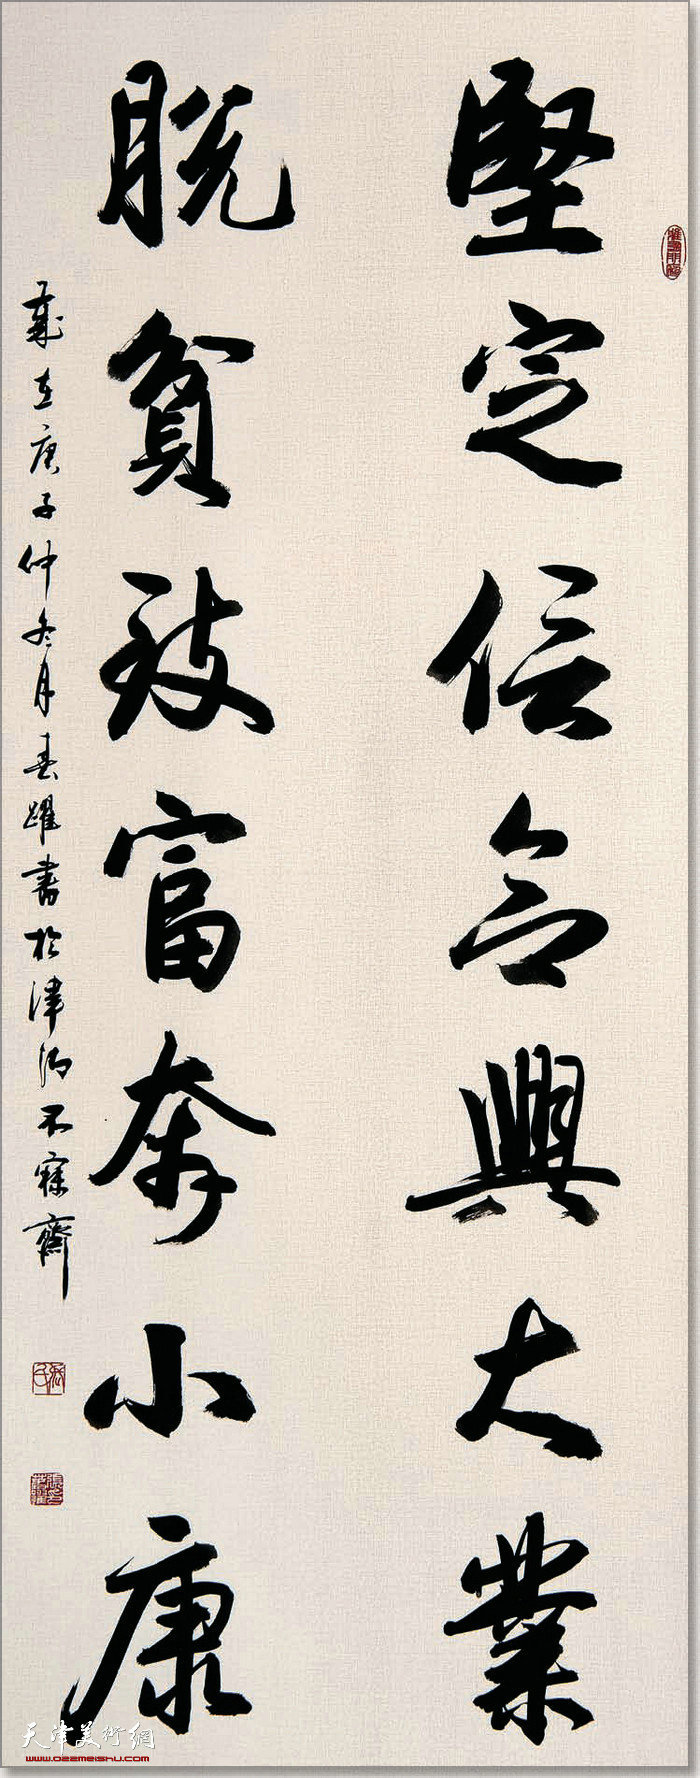 堅定信念興大業
脱貧致富奔小康
歲在庚子仲冬月春躍書於津沽不寐齋
天津美術網
www.022meishu.com